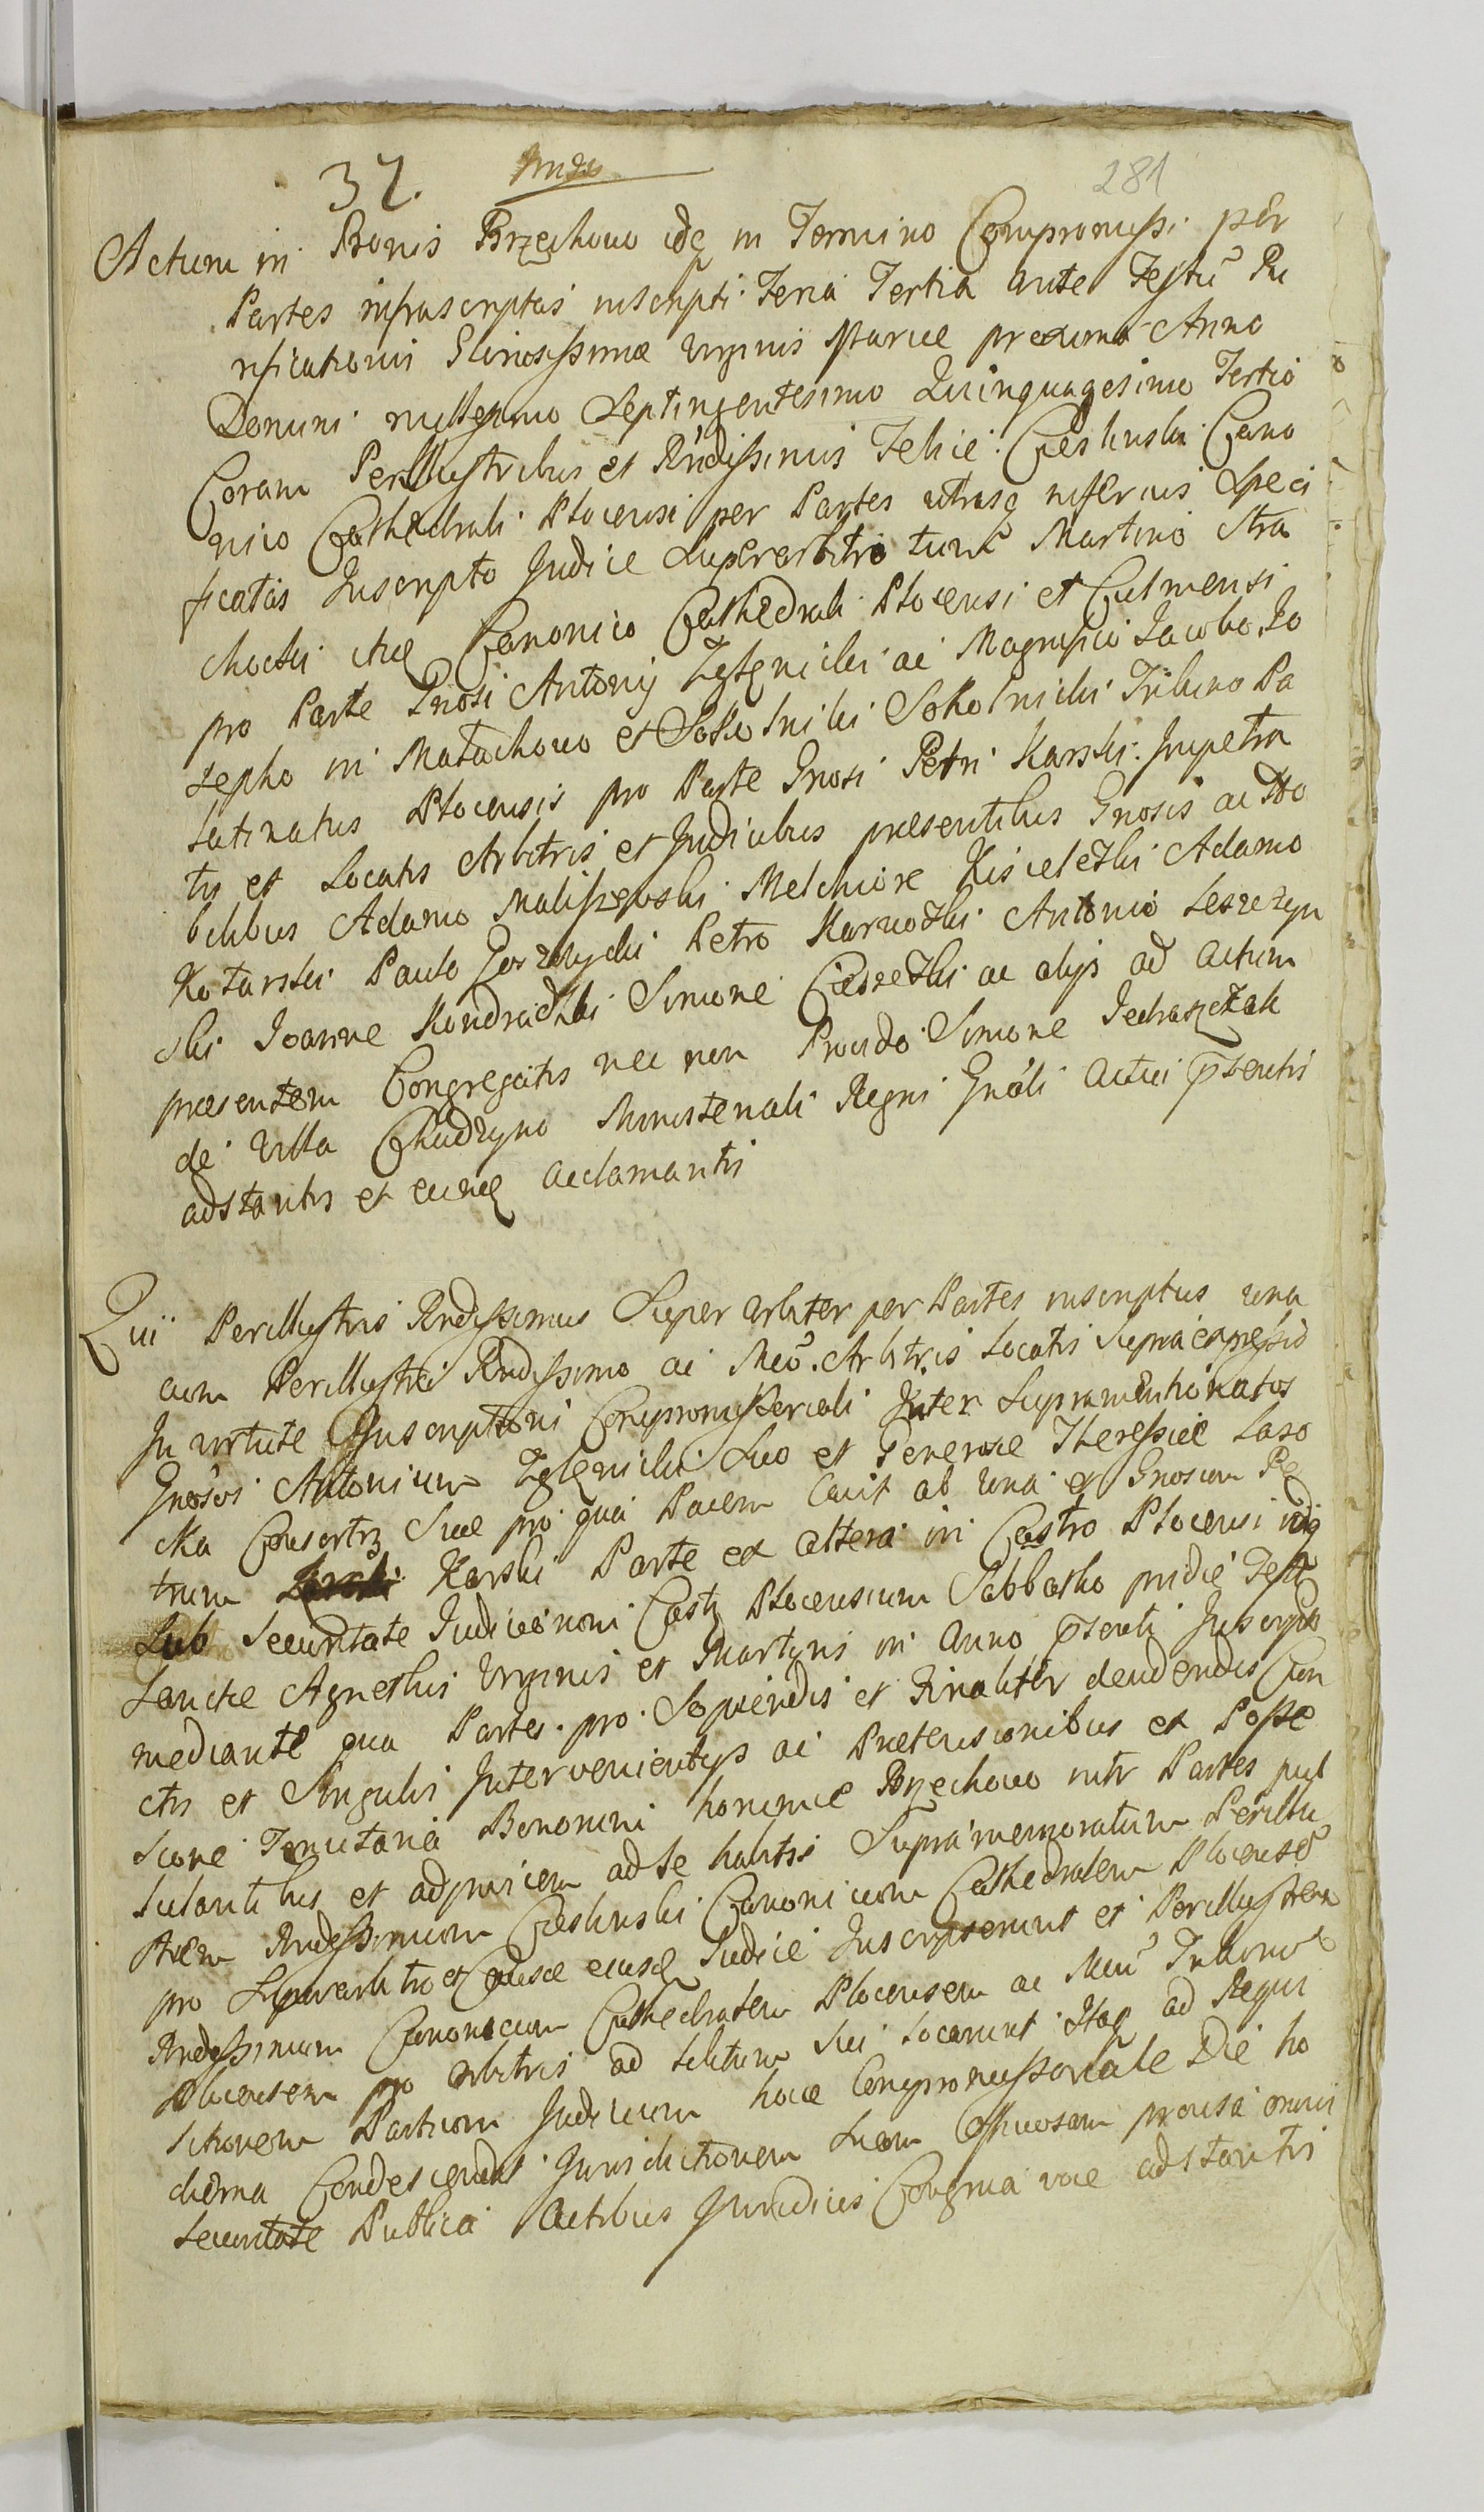 37.
281
Actum in Bonis Brzechowo idq in Termino Compromissi per
Partes infrascriptas inscripti Feria Tertia ante Festũ Pu
rificationis Gloriosissimæ Virginis Mariæ proxima Anno
Domini millesimo Septingentesimo Quinquagesimo Tertio
Coram Perillustribus et Rndissimis Felice Cieslinski Cano
nico Cathedrali Plocensi per Partes utrasq inferius Speci
ficatas Inscripto Judice Superarbitro tum Martino Stra
chocki itq Canonico Cathedrali Plocensi et Culmensi
pro Parte Gnosi Antonij Zglenicki ac Magnifico Jacobo Jo
sepho in Matachowo et Sokolniki Sokolnicki Tribuno Pa
latinatus Plocensis pro Parte Gnosi Petri Karski Impetra
tis et Locatis Arbitris et Judicibus præsentibus Gnosis ac No
bilibus Adamo Maliszewski Melchiore Kisielezki Adamo
Kotarski Paulo Gorzechycki Petro Karwozki Antonio Leszczyn
ski Joanne Kondradzki Simone Cieszezki ac alijs ad actum
præsentem Congregatis nec non Provido Simone Jedraszczak
de Villa Chudzyno Ministeriali Regni Gnãli actui pñsenti
adstantis et eumq acclamantis
Qui Perillustris Rndissimus Super arbiter per Partes inscriptus una
cum Perillustri Rndissimo ac Mco Arbitris Locatis supra expressis
In virtute Inscriptionis Compromissorialis Inter Supramentionatos
Gnosos Antonium Zglenicki Suo et Generosæ Theressiæ Laso
cka Consortis Suæ pro qua Pacem Cavit ab una et Gnosum Pe
trum Karski Parte ex altera in Castro Plocensi idq
Sub Securitate Judiciorum Castr Plocensium Sabbatho pridie Festi
Sanctæ Agnethis Virginis et Martyris in anno pñsenti Inscripto
mediante qua Partes pro Sopiendis et Finaliter decidendis Cun
ctis et Singulis Intervenientijs ac Prætensionibus ex Posse
ssione Tenutaria Bonorum hominiæ Brzechowo intr Partes pul
sulantibus et adinvicem ad se habitis Supra memoratum Perillu
strem Rndissimum Cieslinski Canonicum Cathedralem Plocensẽ
pro Superarbitro et Causæ eiusq Judice Inscripserunt et Perillustrem
Rndissimum Canonicum Cathedralem Plocensem ac Mcũ Tribunũ
Plocensem pro arbitris ad Libitum Sui Locarunt Itaq ad Requi
sitionem Partium Judicium hocce Compromissoriale Die ho
dierna Condescendens Jurisdictionem Suam Officiosam præuisa omni
securitate Publica Actibus Juridicis Congrua voce adstantis